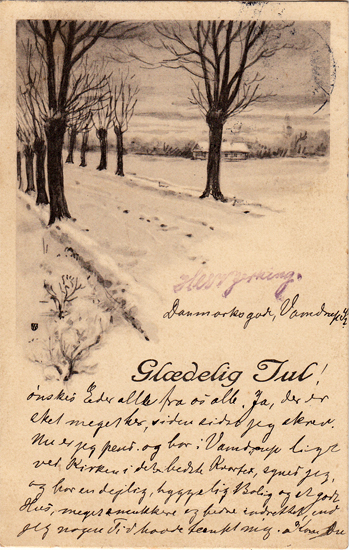 Danmarksgade, Vamdrup
Glædelig Jul!
ønskes Eder alle fra os alle. Ja, der er
sket meget her, siden sidst jeg skrev.
Nu er jeg pens. og bor i Vamdrup ligt
ved Kirken i det bedste Kvarter, synes jeg,
og har en dejlig, hyggelig Bolig og et godt
Hus, meget smukkere og bedre indrettet, end
jeg nogen Tid havde tænkt mig.